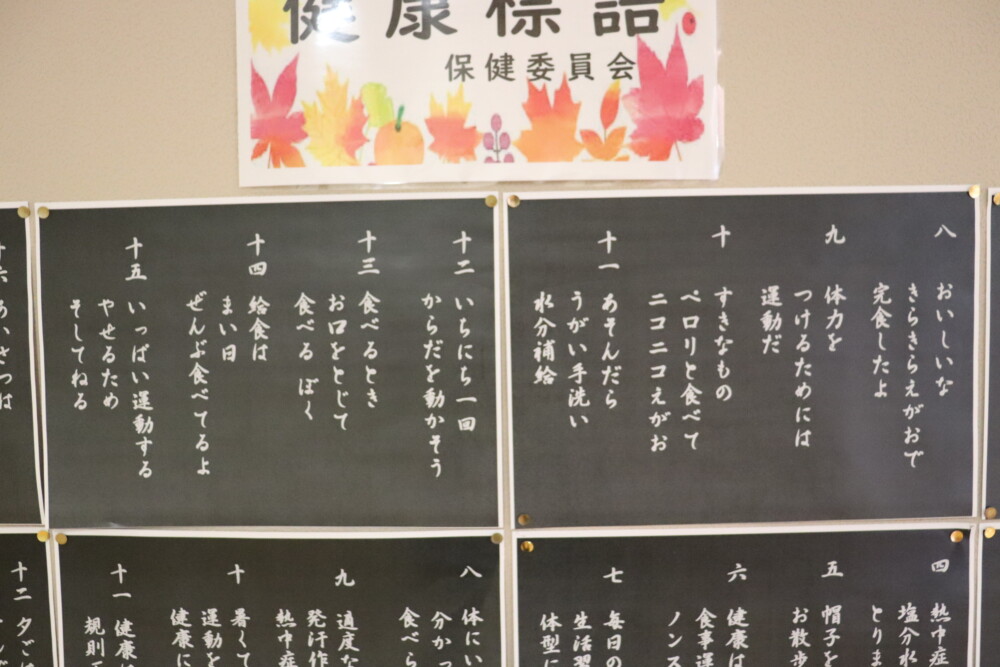 健康標語
保健委員会
八
おいしいな
きらきらえがおで
完食したよ
九
体力を
つけるためには
運動だ
十
すきなもの
ペロリと食べて
ニコニコえがお
十一
あそんだら
うがい手洗い
水分補給
十二
いちにち一回
からだを動かそう
十三
食べるとき
お口をとじて
食べる ぼく
十四
給食は
まい日
ぜんぶ食べてるよ
十五
いっぱい運動する
やせるため
そしてねる
十六
あいさつは
四
熱中症
塩分水
とりま
五
帽子を
お散歩
六
健康は
食事運
ノンス
七
毎日の
生活習
体型に
八
体にい
分かっ
食べら
九
適度な
発汗作
熱中症
十
暑くて
運動を
健康に
十一
健康は
規則正
十二
夕ごは